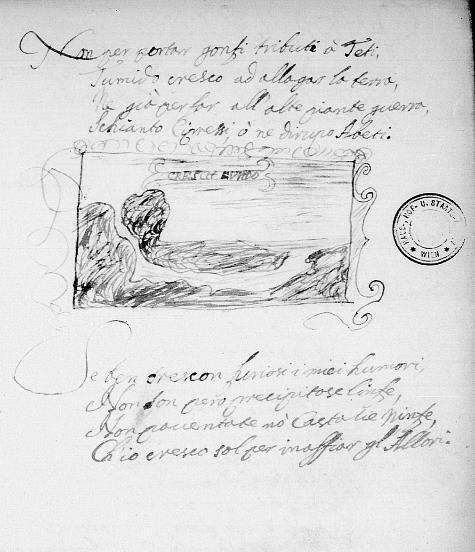 Non per portar gonfi tributi à Teti,
Tumido cresco ad allagar la terra,
Ne già per far all' alte piante guerra,
Schianto Cipressi, ò ne dirupo Abeti.
CRESCIT EUNDO
Se ben crescon furiosi i miei humori,
Non son però precipitose linfe,
Non paventate nò Castalie Ninfe,
Ch'io cresco sol per inaffiar gl'Allori.
HOF- U. STAATS
WIEN